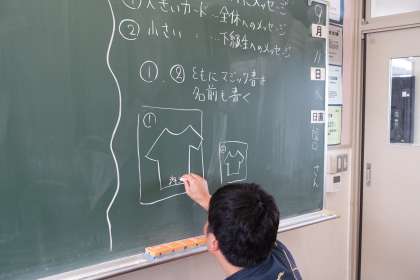 ① 大きいカード…全体へのメッセージ
② 小さい …下級生へのメッセージ
①、②ともにマジック書き
名前も書く
①
②
9
月
日
日直
さん